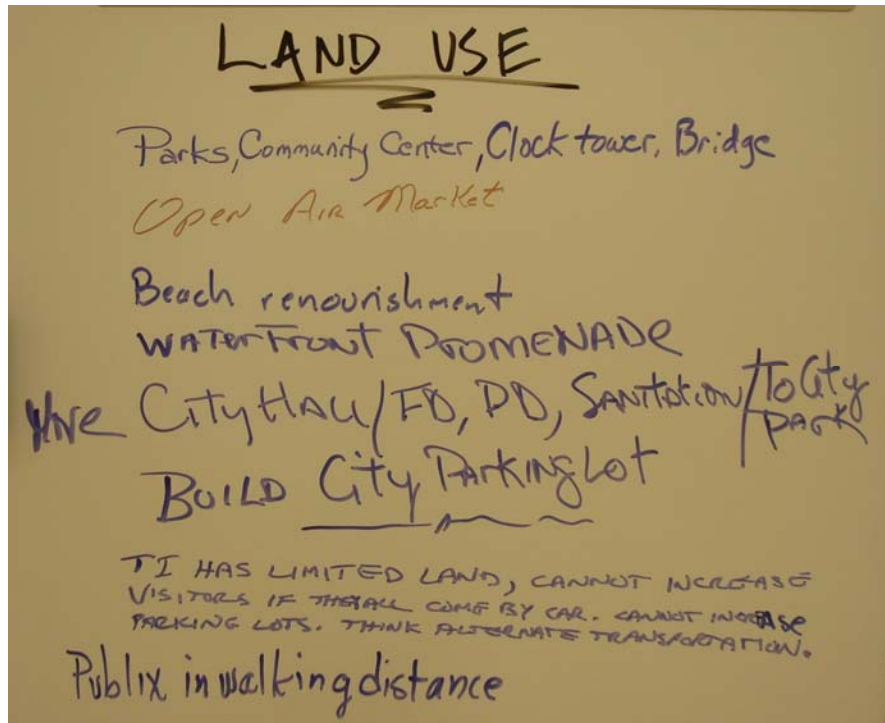 LAND USE
Parks, Community Center, Clock tower, Bridge
Open Air Market
Beach renourishment
WATERFRONT PROMENADE
City Hall/FD, PD, SANITATION/To City PARK
BUILD City PARKING LOT
TI HAS LIMITED LAND, CANNOT INCREASE
VISITORS IF THEY ALL COME BY CAR. CANNOT INCREASE
PARKING LOTS. THINK ALTERNATE TRANSPORTATION.
Publix in walking distance